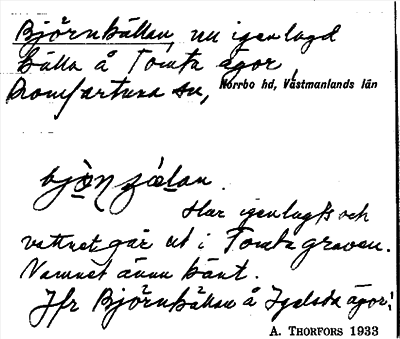 Björnkällan, nu igenlagd
källa å Tomta ägor,
Romfartuna sn, Norrbo hd, Västmanlands län
Har igenlagts och
vattnet går ut i Tomtagraven.
Namnet ännu känt.
Jfr Björnkällan å Igelsta ägor!
A. THORFORS 1933